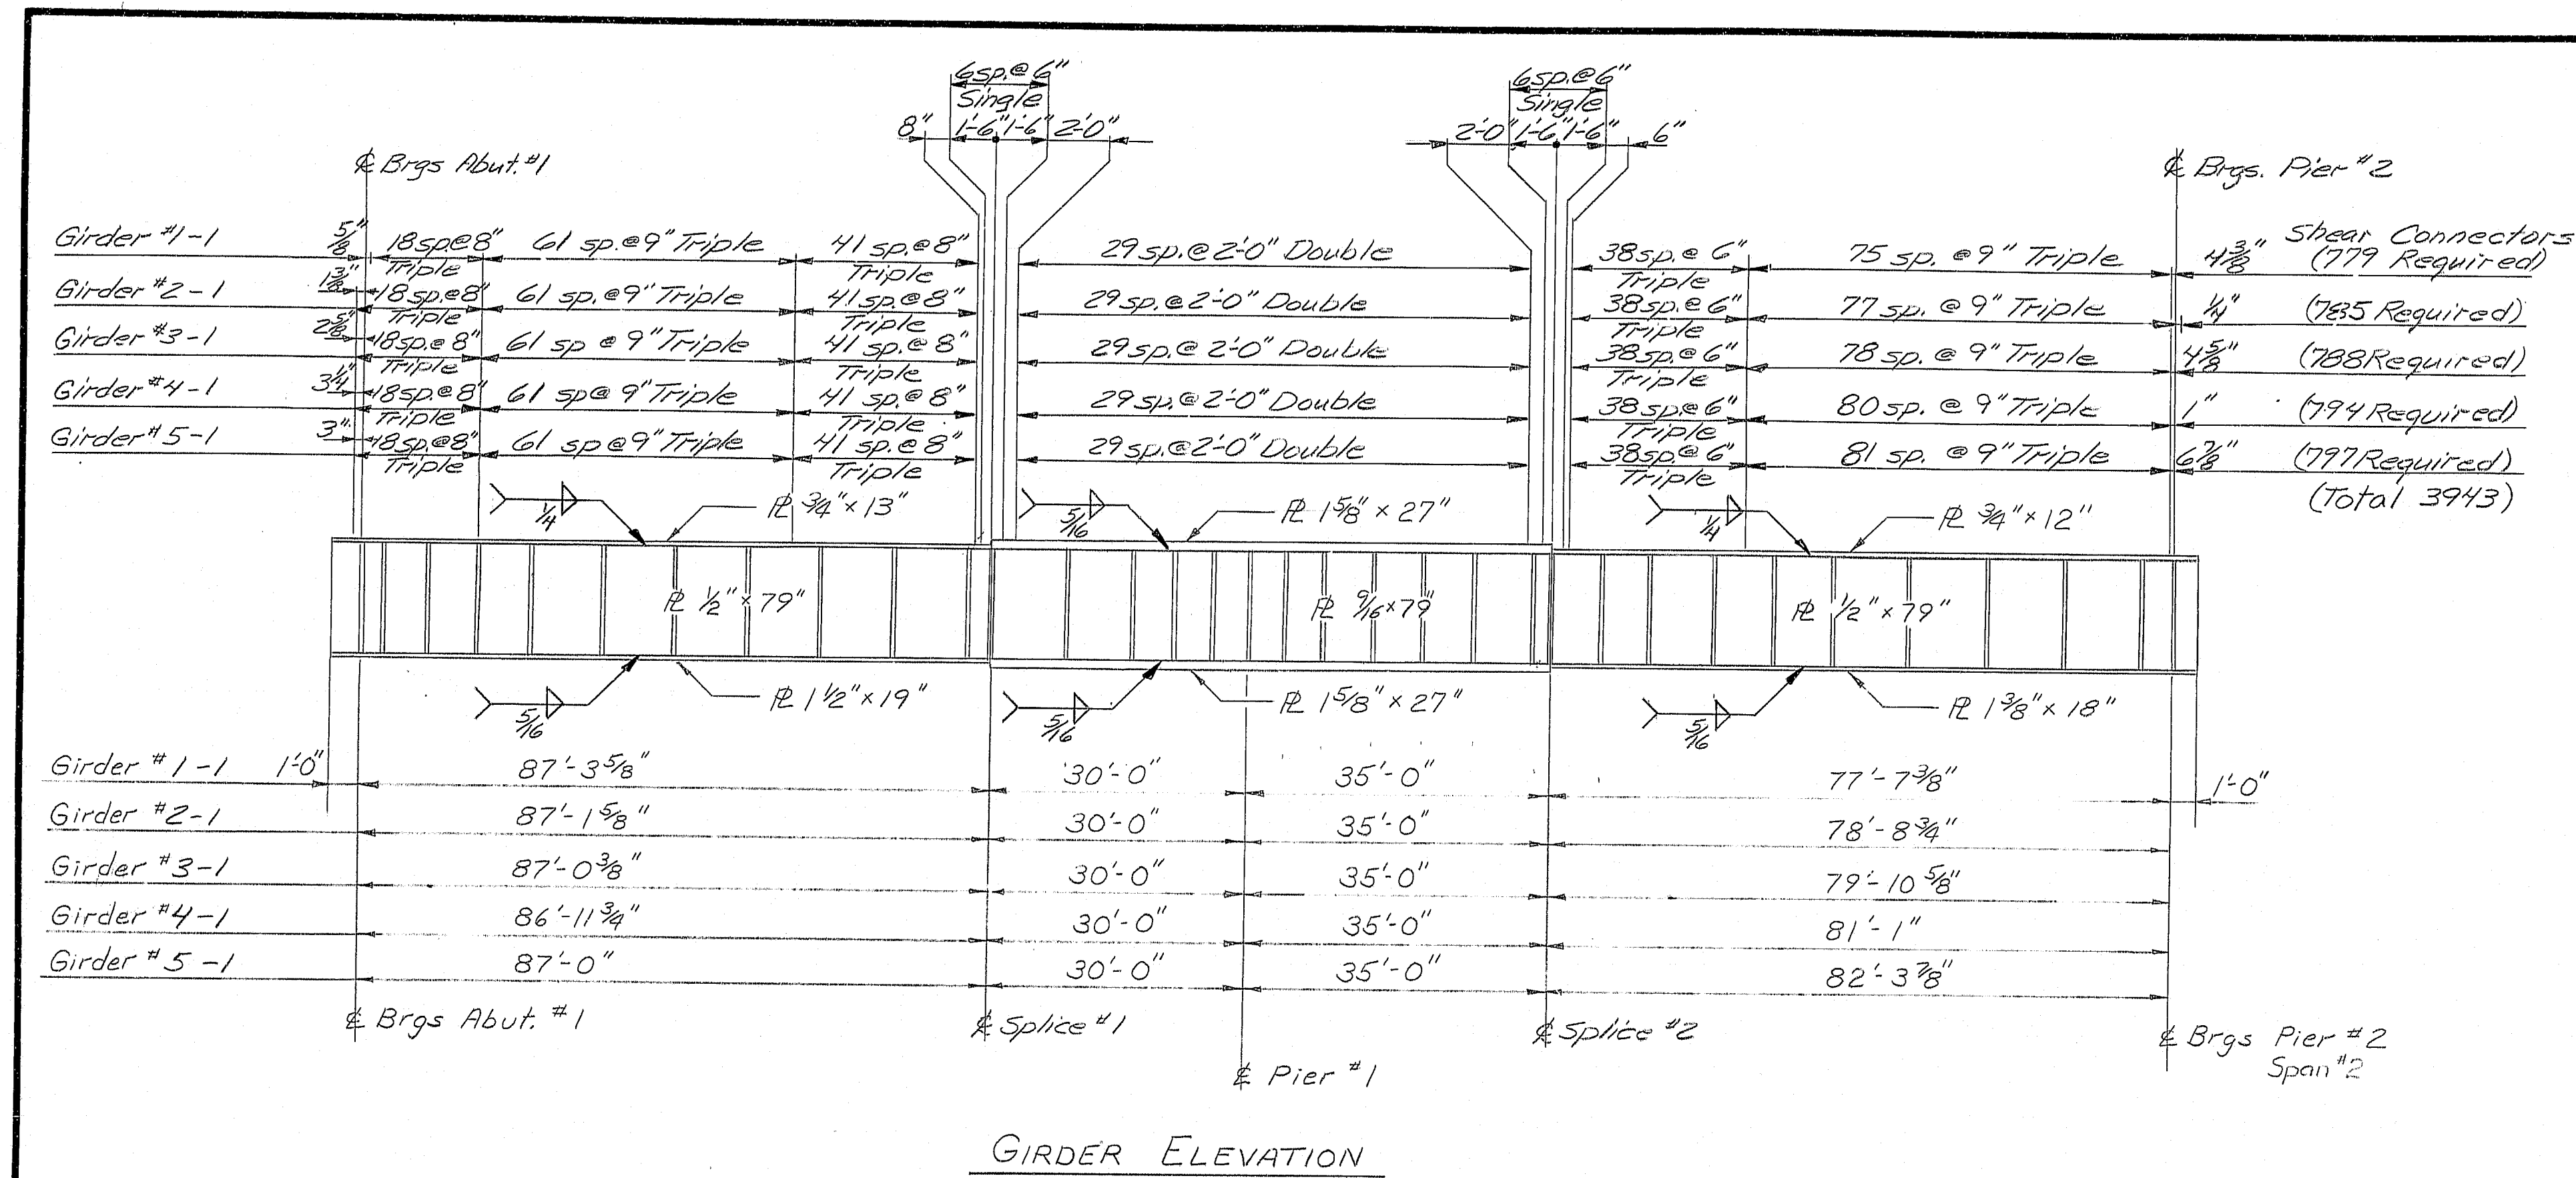 6sp.@6" 6sp.@6"
Single Single
8" 1'-6" 1'-6" 2'-0" 2'-0" 1'-6" 1'-6" 6"
℄ Brgs Abut. #1 ℄ Brgs. Pier #2
Shear Connectors
Girder #1-1 5/8" 18sp.@8" Triple 61 sp.@9" Triple 41 sp.@8" Triple 29 sp.@2'-0" Double 38sp.@6" Triple 75 sp. @9" Triple 4 3/8" (779 Required)
Girder #2-1 1 3/8" 18sp.@8" Triple 61 sp.@9" Triple 41 sp.@8" Triple 29 sp.@2'-0" Double 38sp.@6" Triple 77 sp. @ 9" Triple 1/4" (785 Required)
Girder #3-1 2 5/8" 18sp.@8" Triple 61 sp @ 9" Triple 41 sp.@8" Triple 29 sp.@ 2'-0" Double 38sp.@6" Triple 78 sp. @ 9" Triple 4 5/8" (788 Required)
Girder #4-1 3 1/4" 18sp.@8" Triple 61 sp@ 9" Triple 41 sp.@8" Triple 29 sp.@2'-0" Double 38sp.@6" Triple 80 sp. @ 9" Triple 1" (794 Required)
Girder #5-1 3" 18sp.@8" Triple 61 sp@9" Triple 41 sp.@8" Triple 29 sp.@2'-0" Double 38sp.@6" Triple 81 sp. @ 9" Triple 6 7/8" (797 Required)
(Total 3943)
1/4 ℄ 3/4" x 13" 5/16 ℄ 1 5/8" x 27" 1/4 ℄ 3/4" x 12"
℄ 1/2" x 79" ℄ 9/16 x 79" ℄ 1/2" x 79"
5/16 ℄ 1 1/2" x 19" 5/16 ℄ 1 5/8" x 27" 5/16 ℄ 1 3/8" x 18"
Girder #1-1 1'-0" 87'-3 5/8" 30'-0" 35'-0" 77'-7 3/8" 1'-0"
Girder #2-1 87'-1 5/8" 30'-0" 35'-0" 78'-8 3/4"
Girder #3-1 87'-0 3/8" 30'-0" 35'-0" 79'-10 5/8"
Girder #4-1 86'-11 3/4" 30'-0" 35'-0" 81'-1"
Girder #5-1 87'-0" 30'-0" 35'-0" 82'-3 7/8"
℄ Brgs Abut. #1 ℄ Splice #1 ℄ Splice #2 ℄ Brgs Pier #2
℄ Pier #1 Span #2
GIRDER ELEVATION